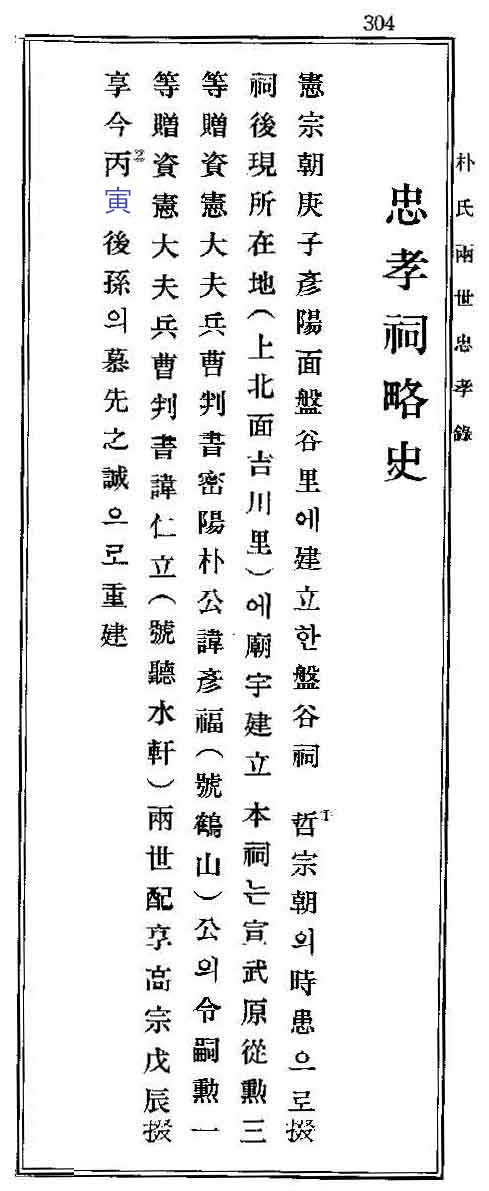 304
朴氏兩世忠孝錄
忠孝祠略史
憲宗朝庚子彥陽面盤谷里에建立한盤谷祠 哲宗朝의時患으로掇
祠後現所在地(上北面吉川里)에廟宇建立 本祠는宣武原從勲三
等贈資憲大夫兵曹判書密陽朴公諱彥福(號鶴山)公의令嗣勲一
等贈資憲大夫兵曹判書諱仁立(號聽水軒)兩世配享高宗戊辰掇
享今丙寅後孫의慕先之誠으로重建